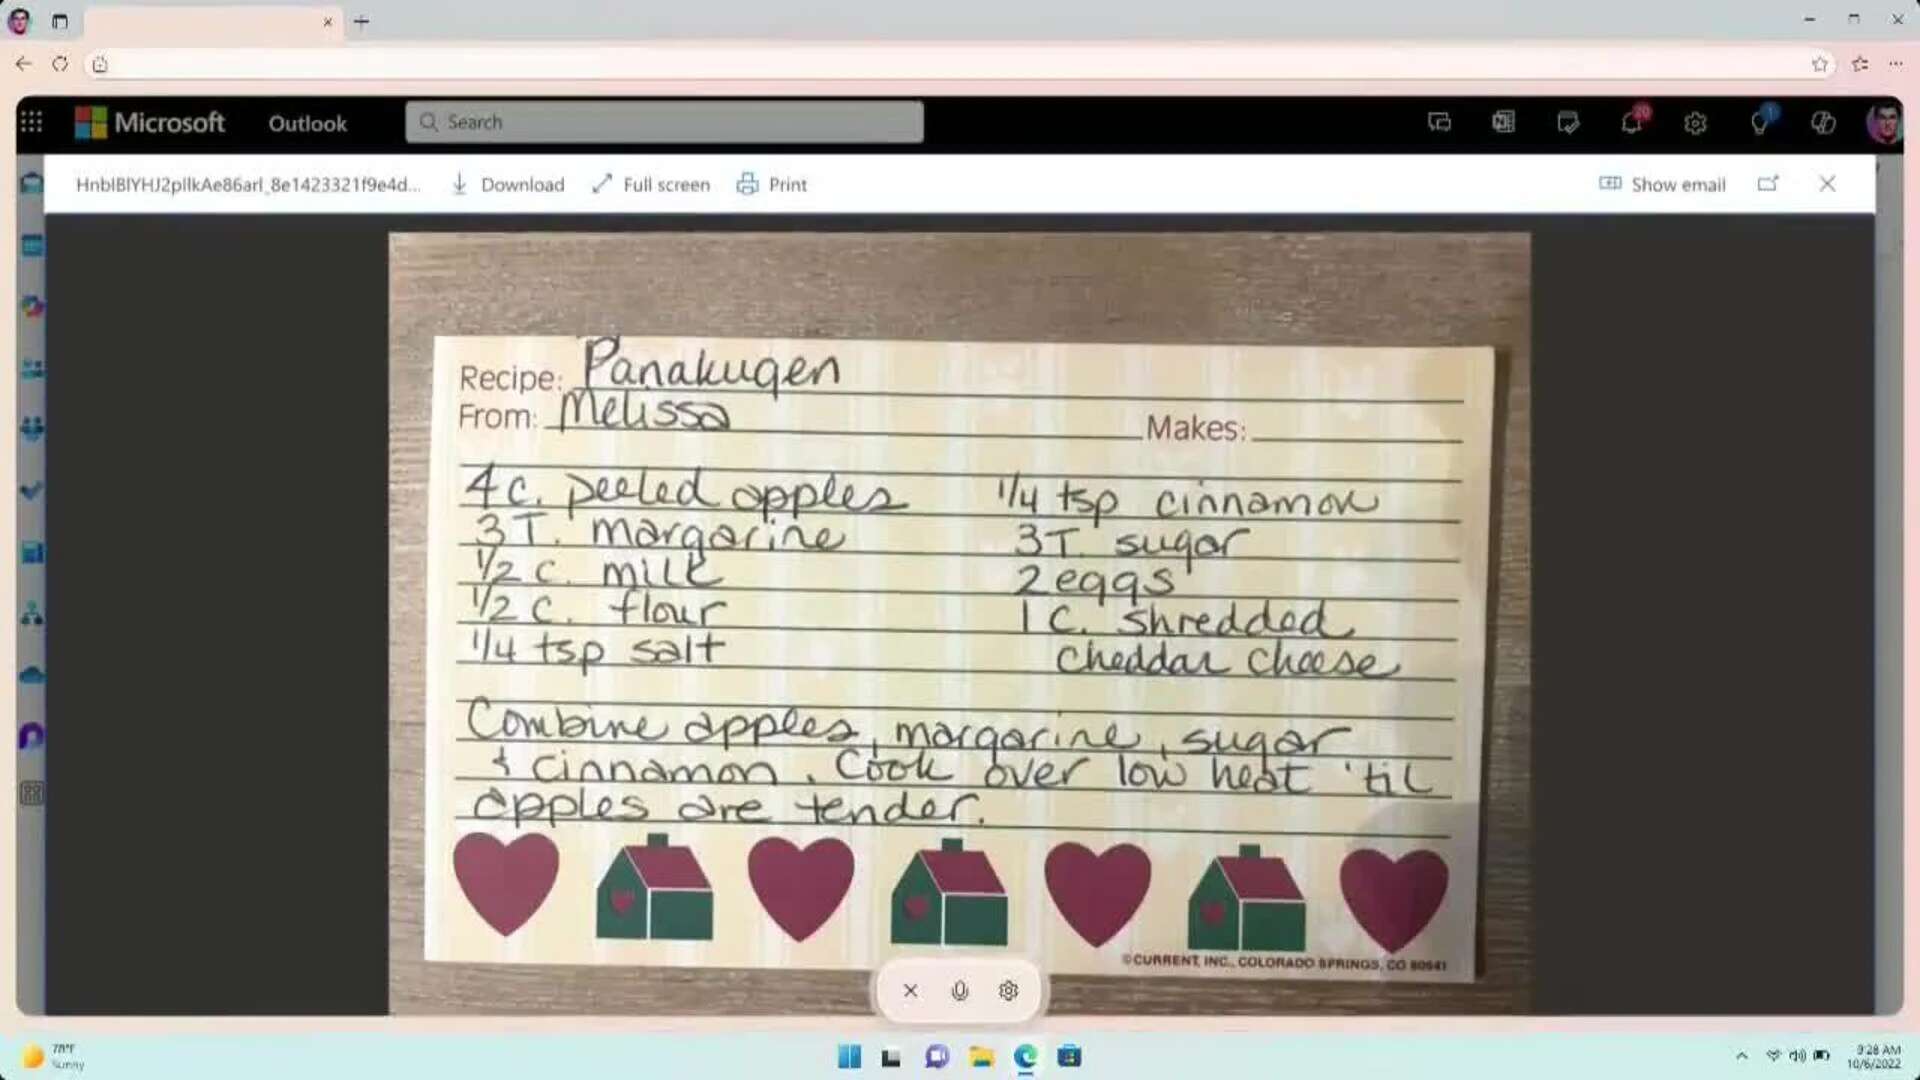 Microsoft Outlook Search 20 1
HnbIBlYHJ2pllkAe86arl_8e1423321f9e4d... Download Full screen Print Show email
Recipe: Panakugen
From: Melissa Makes:
4 c. peeled apples 1/4 tsp cinnamon
3 T. margarine 3 T. sugar
1/2 c. milk 2 eggs
1/2 c. flour 1 c. shredded
1/4 tsp salt cheddar cheese
Combine apples, margarine, sugar
& cinnamon. Cook over low heat 'til
apples are tender.
©CURRENT, INC., COLORADO SPRINGS, CO 80941
78°F
Sunny
9:28 AM
10/6/2022